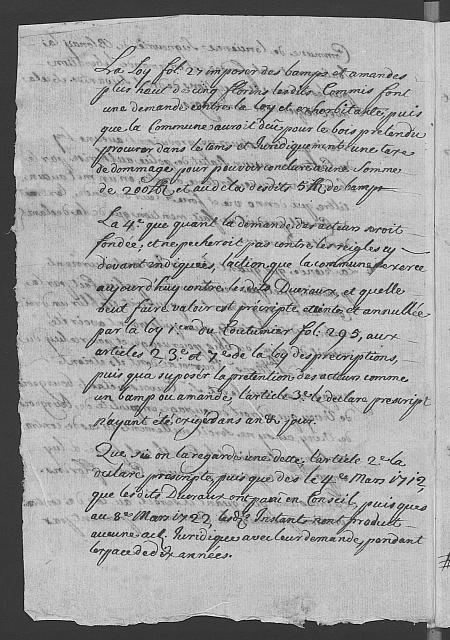 La Loy fol. 27 imposer des bamps et amandes
plus haut de cinq florins lesdits Commis font
une demande contre la loy et exhorbitante, puis
que la Commune auroit deu pour le bois prétendu
procurer dans le tems et Juridiquement une taxe
de dommage pour pouvoir conclure a une Somme
de 200 et au dela desdits 5 fl. de bamp
La 4.e que quant la demande des acteurs seroit
fondée, et ne pecheroit pas contre les reigles cy
devant indiquées, l'action que la commune exerce
aujourd'huy contre lesdits Duvaux, et quelle
veut faire valoir est préscripte, eteinte et annullée
par la loy 1.ere du Coutumier fol. 295, aux
articles 2, 3.e et 7.e de la loy des prescriptions,
puis qu'a suposer la prétention des acteurs comme
un bamp ou amande, l'article 3.e le declare prescript
n'ayant été exigé dans an & jour.
Que si on la regarde une dette, l'article 2.e la
declare prescripte, puis que des le 4.e Mars 1712,
que lesdits Duvaux ont paru en Conseil, puis ques
au 8.e Mars 1722, lesd. Instants n'ont produit
aucune act. Juridique avec leur demande, pendant
l'espace de dix années.